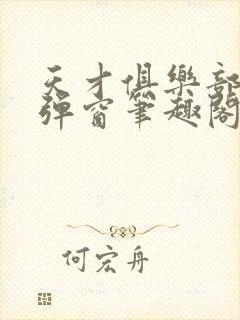 天才俱樂部
彈窗筆趣閣
何宏舟